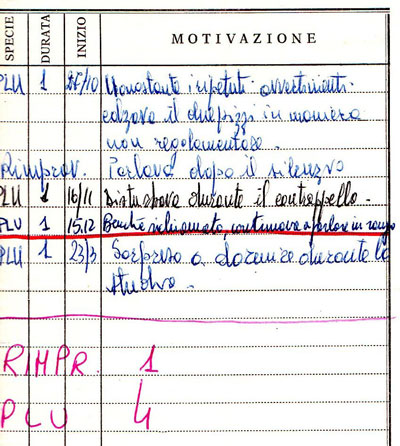 SPECIE DURATA INIZIO MOTIVAZIONE
PLU 1 25/10 Nonostante ripetuti avvertimenti
alzava il due pizzi in maniera
non regolamentare.
Rimprov. Parlava dopo il silenzio
PLU 1 16/11 Disturbava durante il contrappello.
PLU 1 15.12 Benché richiamato, continuava a parlare in rango
PLU 1 23/3 Sorpreso a dormire durante lo
studio.
RIMPR. 1
PLU 4